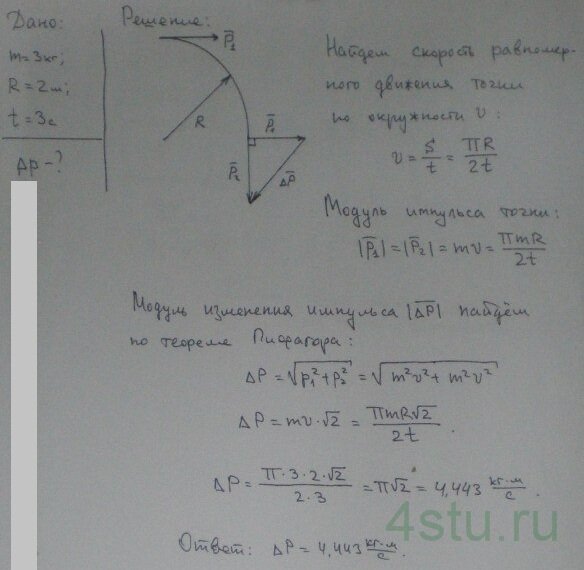 Дано:
m = 3кг;
R = 2м;
t = 3с
Δp - ?
Решение:
P̅₁
R
P̅₁
P̅₂
ΔP̅
Найдем скорость равномер-
ного движения точки
по окружности υ:
υ = S/t = πR/2t
Модуль импульса точки:
|P̅₁| = |P̅₂| = mυ = πmR/2t
Модуль изменения импульса |ΔP̅| найдём
по теореме Пифагора:
ΔP = √(p₁² + p₂²) = √(m²υ² + m²υ²)
ΔP = mυ·√2 = πmR√2/2t.
ΔP = π·3·2·√2/2·3 = π√2 = 4,443 кг·м/с.
Ответ: ΔP = 4,443 кг·м/с.
4stu.ru